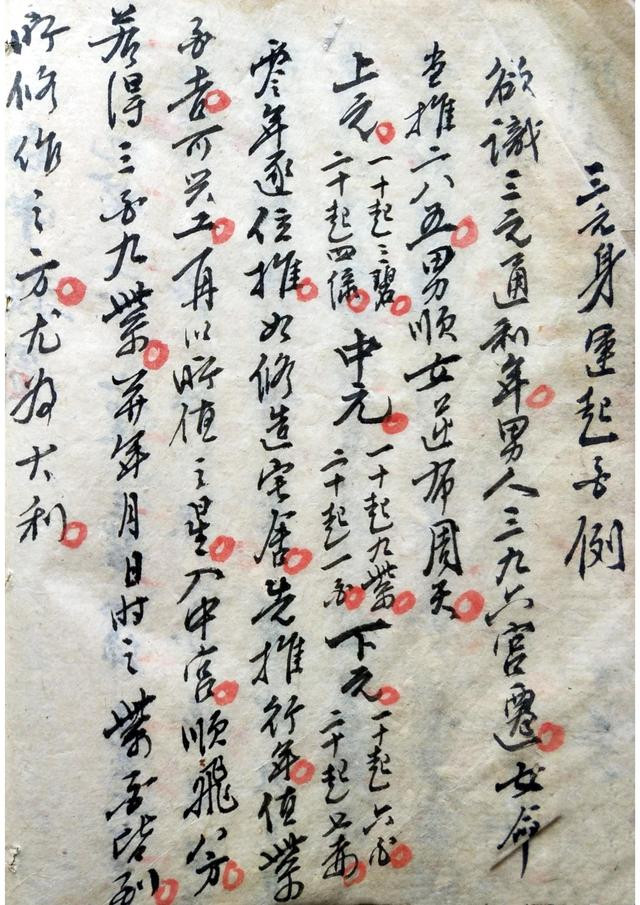 三元身運起白例
欲識三元通和年男人三九六宮遷女命
当推二八五男順女逆布周天
上元 一十起三碧 二十起四綠 中元 一十起九紫 二十起一白 下元 一十起六白 二十起七赤
零年逐位推如修造宅舍先推行年值紫
白者可兴工再以所值之星入中宮順飛八方
若得三白九紫并年月日时之紫白皆到
所修作之方尤为大利